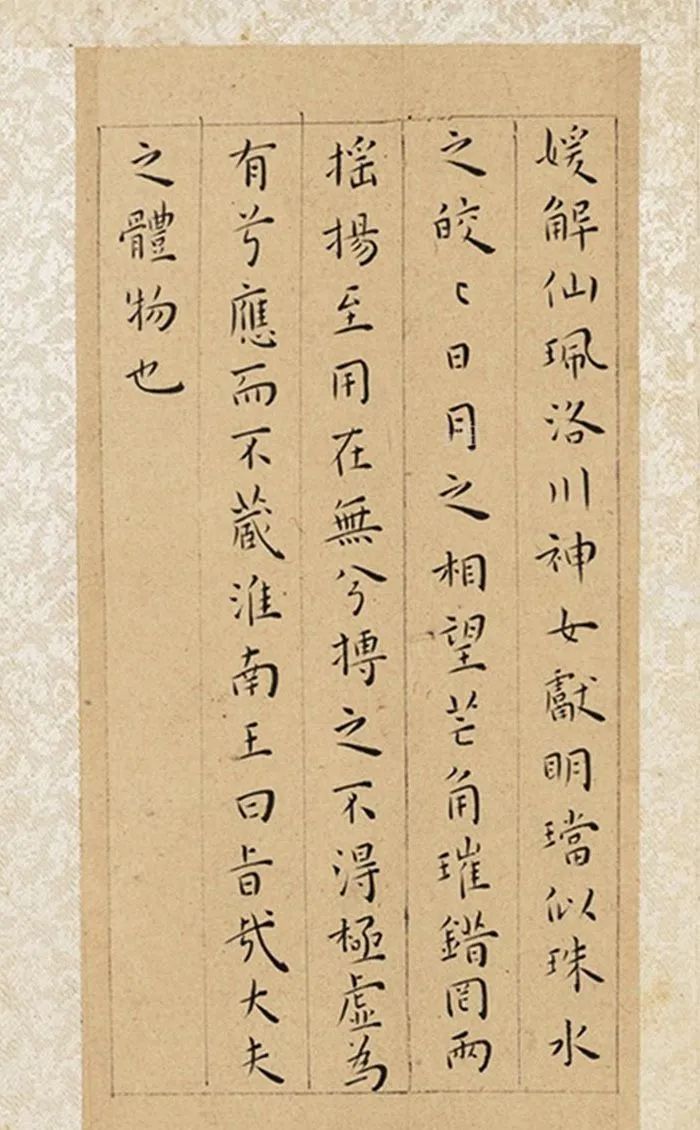 媛解仙珮洛川神女獻明璫似珠水
之皎〻日月之相望芒角璀錯罔兩
揺揚至用在無兮搏之不得極虛為
有兮應而不蔵淮南王曰旨哉大夫
之體物也